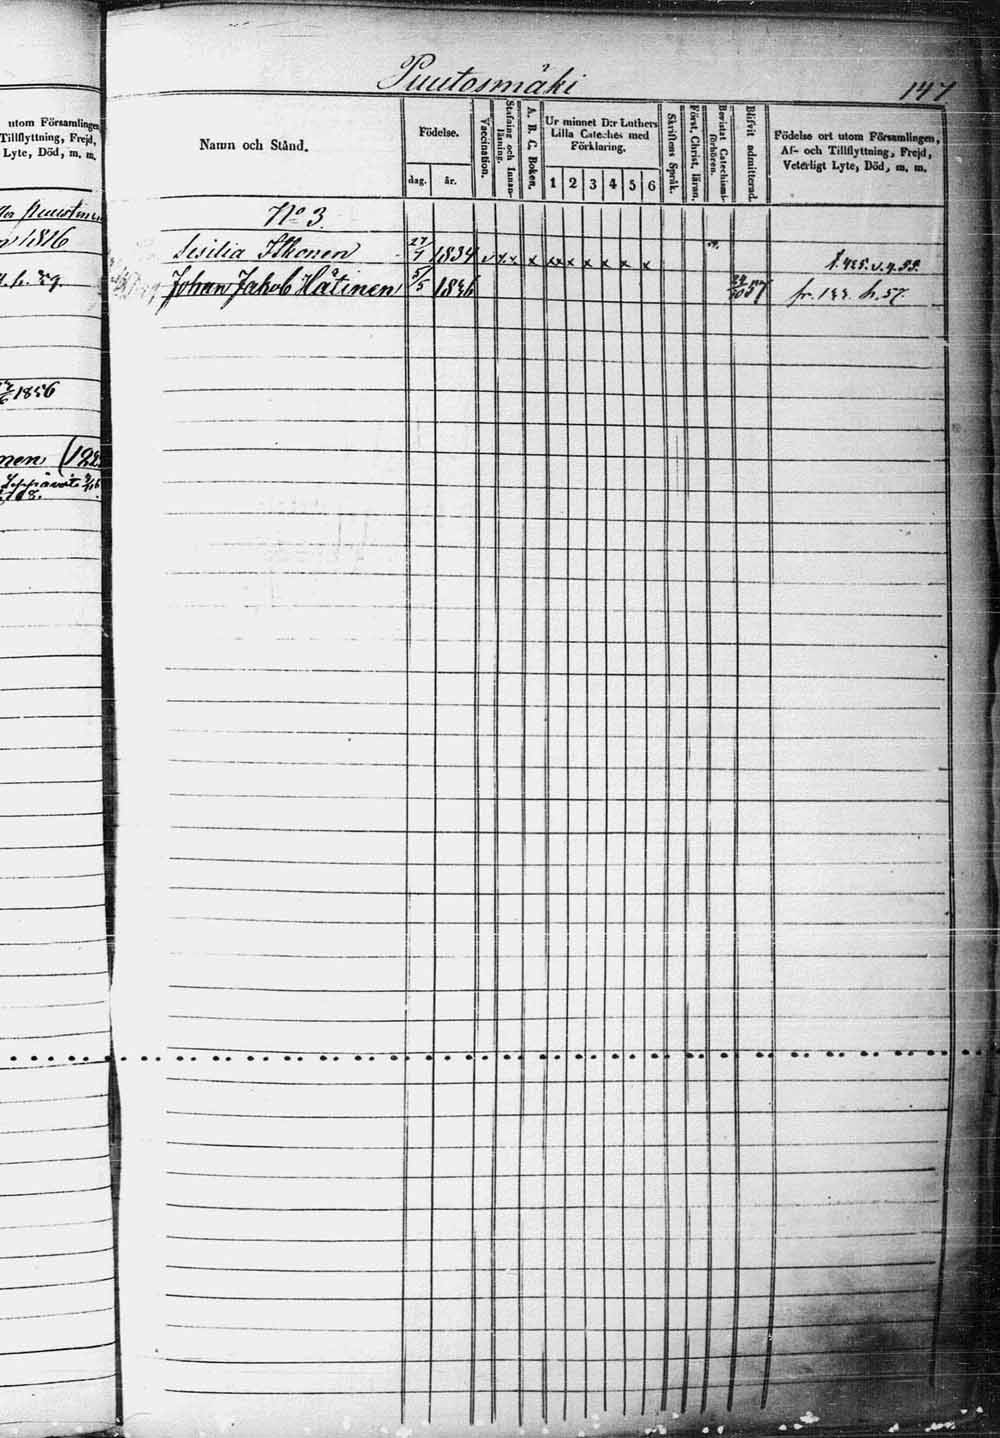 Puutosmäki 147
utom Församlingen,
Tillflyttning, Frejd,
Lyte, Död, m. m.
1816
1856
nen (122
Namn och Stånd.
Födelse.
dag. år.
Vaccination.
Stafning och Innanläsning.
A. B. C. Boken.
Ur minnet D:r Luthers
Lilla Cateches med
Förklaring.
1 2 3 4 5 6
Skriftens Språk.
Först. Christ. läran.
Bevistat Catechismiförhören.
Blifvit admitterad.
Födelse ort utom Församlingen,
Af- och Tillflyttning, Frejd,
Veterligt Lyte, Död, m. m.
No 3.
Sesilia Itkonen 1834 x x x x x x x x x
Johan Jakob Hätinen 5/5 1836 57 fr. 133. h. 57.